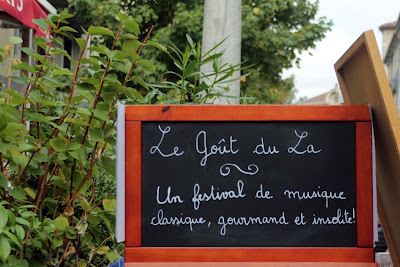 Le Goût du La
Un festival de musique
classique, gourmand et insolite!